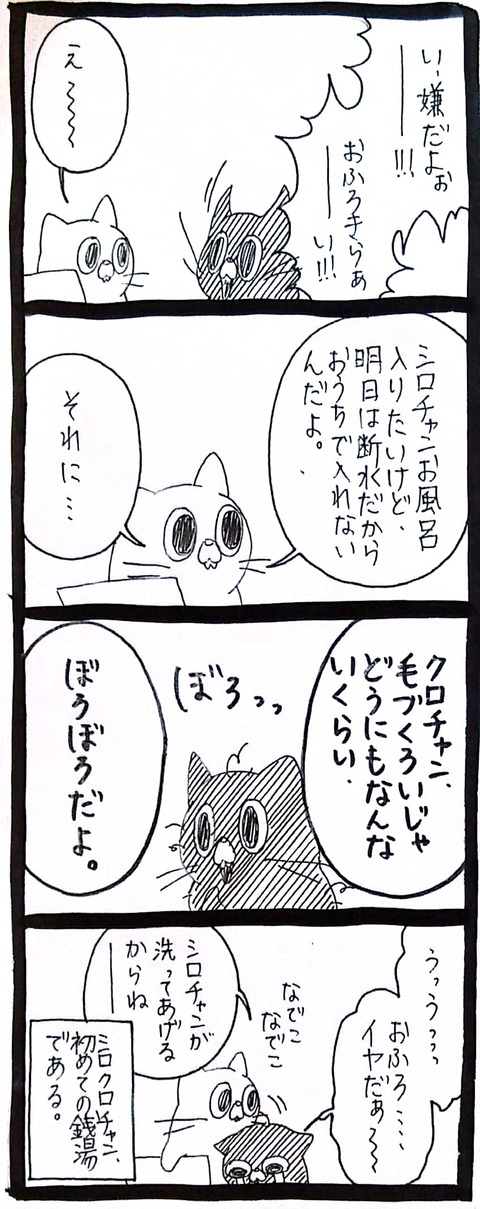 い、嫌だよぉ
――!!!
おふろきらぁ
――い!!!
え〜〜〜
シロチャンお風呂
入りたいけど、
明日は断水だから
おうちで入れない
んだよ。
それに…
クロチャン、
毛づくろいじゃ
どうにもなんな
いくらい、
ぼろっっ
ぼろぼろだよ。
うっうっっっ
おふろ……
イヤだぁ〜〜
なでこ
なでこ
シロチャンが
洗ってあげる
からね
――
シロクロチャン、
初めての銭湯
である。